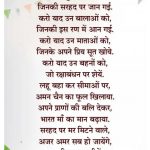 जिनकी सरहद पर जान गई.
करो याद उन बालाओं को,
जिनकी इस रण में आन गई.
करो याद उन माताओं को,
जिनके अपने प्रिय सूत खोये.
करो याद उन बहनों को,
जो रक्षाबंधन पर रोयें.
लहू बहा कर सीमाओं पर,
अमन चैन का फूल खिलाया.
अपने प्राणों की बलि देकर,
भारत माँ का मान बढ़ाया.
सरहद पर मर मिटने वाले,
अजर अमर सब हो जायेंगे,